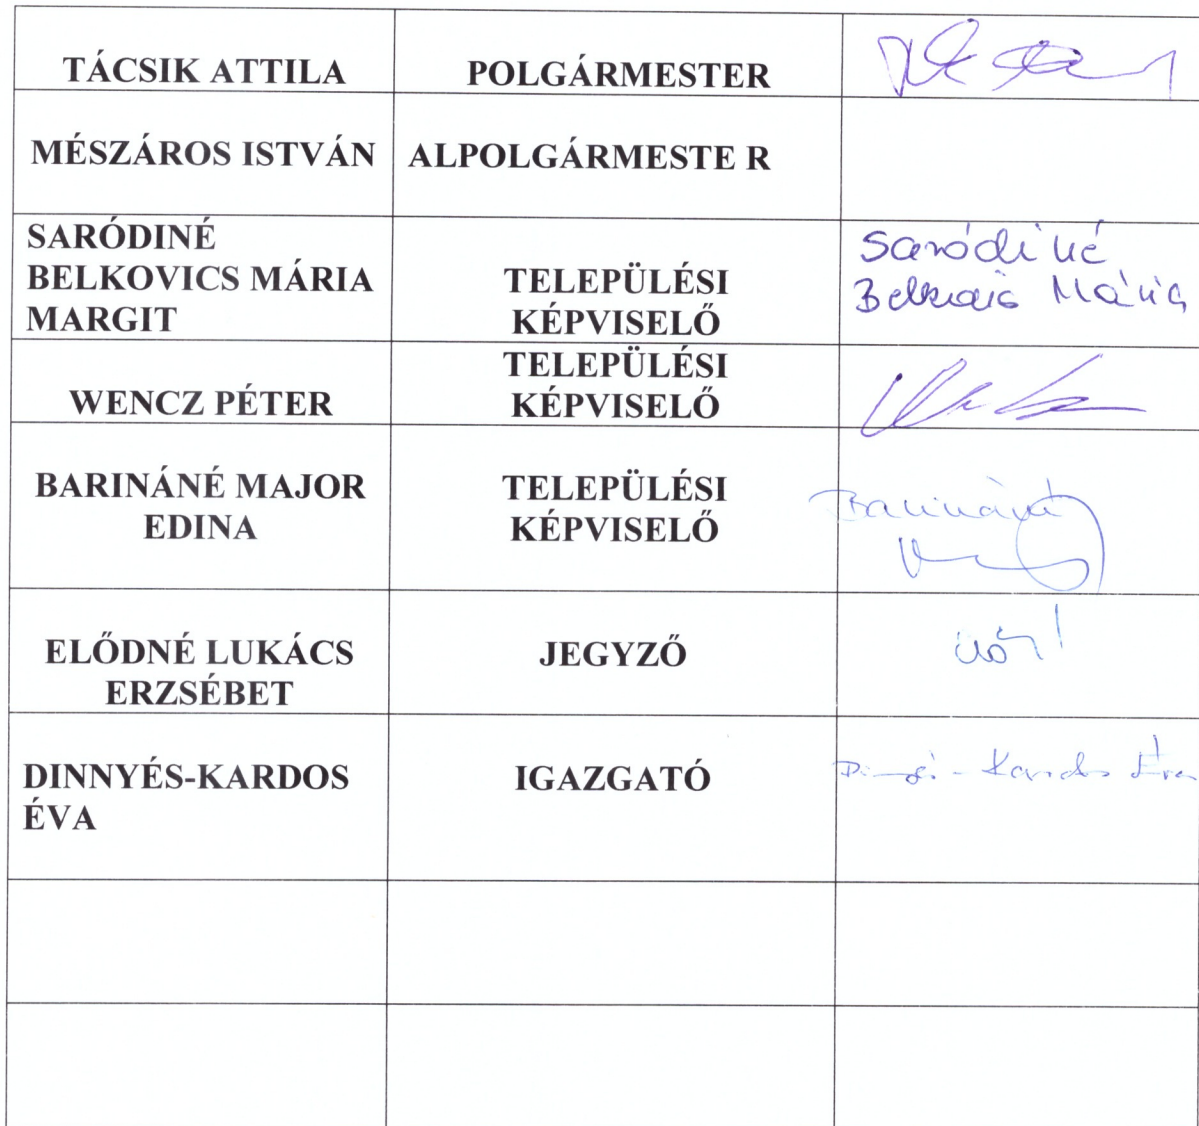 TÁCSIK ATTILA POLGÁRMESTER
MÉSZÁROS ISTVÁN ALPOLGÁRMESTE R
SARÓDINÉ
BELKOVICS MÁRIA
MARGIT
TELEPÜLÉSI
KÉPVISELŐ
Saródiné
Belkovics Mária
WENCZ PÉTER
TELEPÜLÉSI
KÉPVISELŐ
BARINÁNÉ MAJOR
EDINA
TELEPÜLÉSI
KÉPVISELŐ
Barináné
ELŐDNÉ LUKÁCS
ERZSÉBET
JEGYZŐ
DINNYÉS-KARDOS
ÉVA
IGAZGATÓ
Kardos Éva